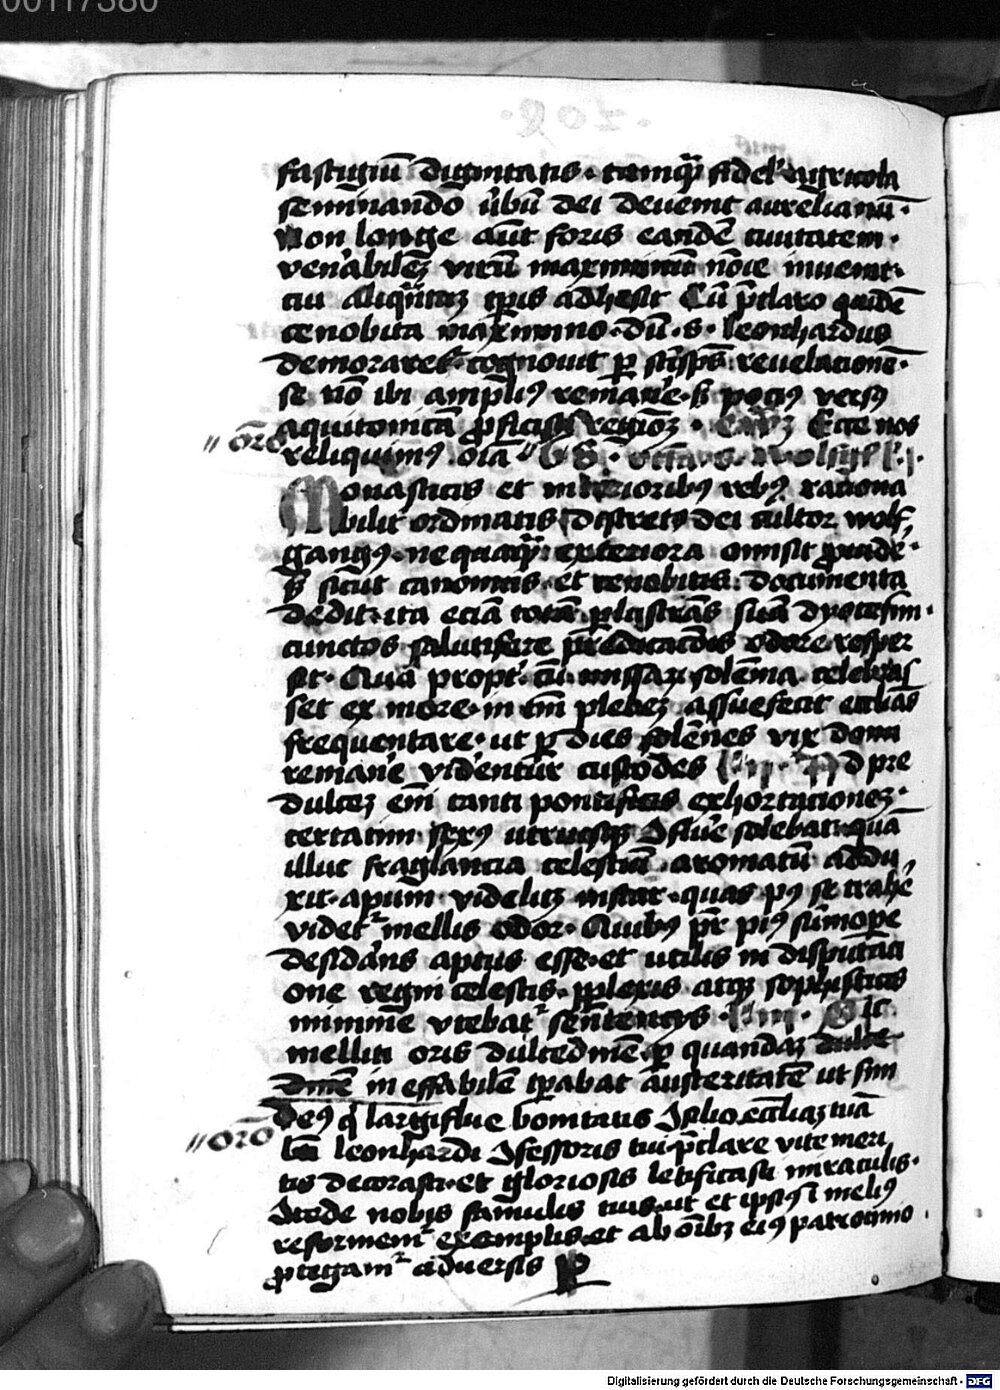 00117380
fastigiū dignitatis · tamq̄ fidel' agricola
seminando v̄bū dei devenit aurelianū ·
Non longe aūt foris eandē civitatem ·
ven'abilē virū maximinū nōīe invenit ·
cui aliq̄ntū tp̄is adhesit Cū p̄claro quidē
cenobita maximino · dū · s · leonhardus
demoraret' · cognovit p sc̄i sp̄s revelationē ·
se nō ibi ampli9 remane'e · s; poci9 vers9
aquitanicā p̄ficisci regionē · Ecce nos
reliquim9 oīa
// or̄o
Monasticis et interiorib9 reb9 rationa
bilit' ordinatis discret9 dei cultor wolf,
gang9 · nequaq̄ exteriora omisit p̄vide' ·
s; sicut canonicis · et cenobitis documenta
dedit · ita eciā totā p̄lustrās suā dyocesim ·
cunctos salutifere p̄dicac̄ois odore resper
sit · Quā propt' · cū missarū solēnia celebras
set ex more · in tm̄ plebez assuefecit eccl'ias
frequentare · ut p dies solēnes vix domi
remane'e vident'ur custodes Ad pre
dulcez em̄ tanti pontificis exhortationez ·
certatim sex9 uterq; 9flue'e solebat · quā
illuc fraglancia celestiū aromatū addu,
xit · apum videlicz instar · quas p9 se trahe'
videt' mellis odor · Quib9 p̄r pi9 sūmope
desid'ans aptus esse et utilis in disputaci
one regni celestis · p̄plexis atq; sophisticis
minime vtebat' sentencijs · Sic
melliti oris dulcedinē · p quandaz dulce
dinē ineffabilē tp̄abat austeritatē ut sim
// or̄o
De9 q' largiflue bonitatis 9silio eccl'iaz tuā
bt̄i leonhardi 9fessoris tui p̄clare vite meri
tis decorasti · et gloriosis letificasti miraculis ·
9cede nobis famulis tuis · ut et ipsi9 ī meli9
reformem' exemplis · et ab oīb; ei9 patrocinio
p̄tegam' adversis P
Digitalisierung gefördert durch die Deutsche Forschungsgemeinschaft - DFG